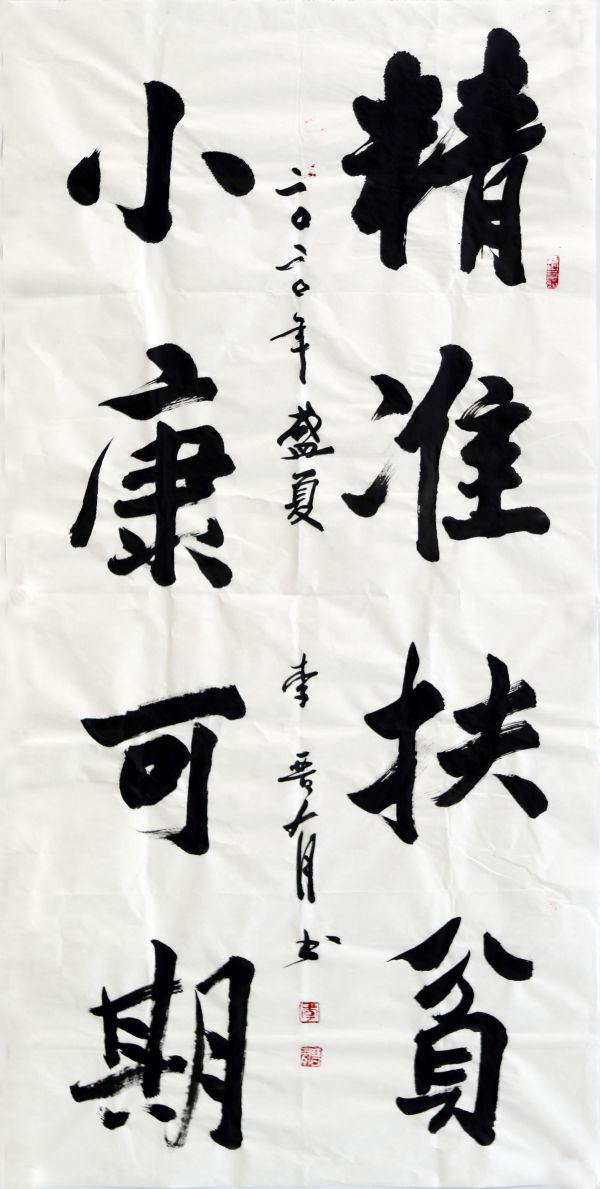 精准扶贫
小康可期
二〇二〇年盛夏
李晋有书